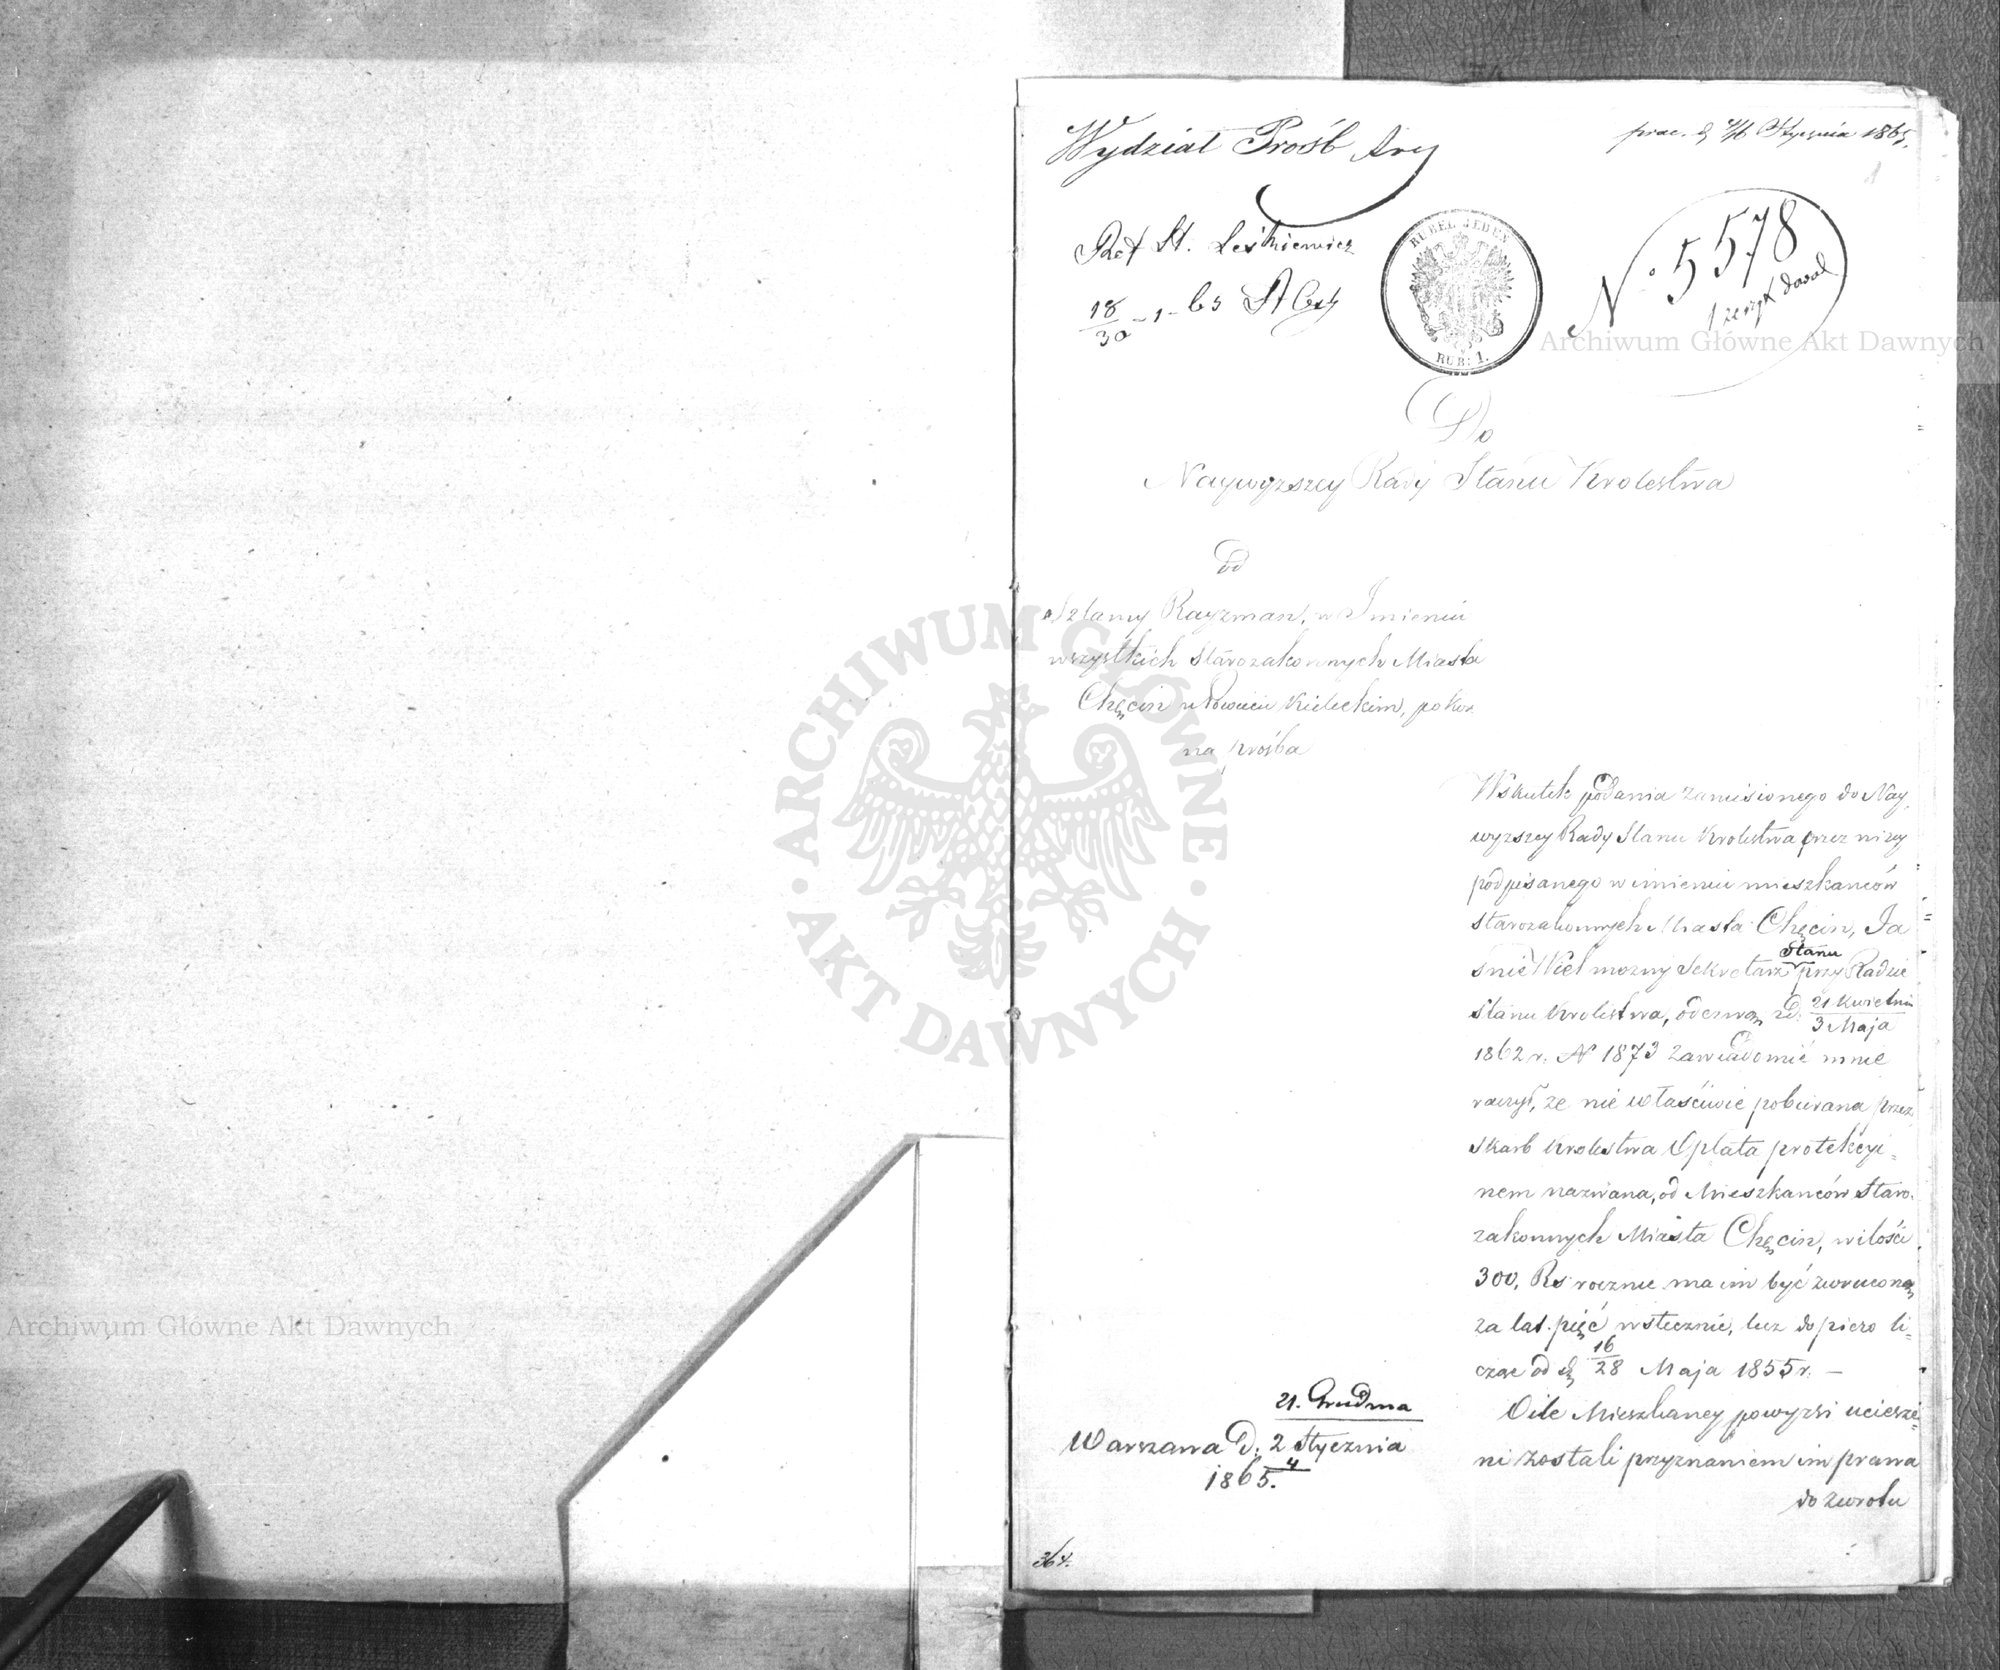 Wydział Próśb
prac. d 4/16 Stycznia 1865.
1
Ref St. Leśkiewicz
18/30 - 1 - 65
RUBEL JEDEN
RUB: 1.
N° 5578
1 zeszyt dawał
Archiwum Główne Akt Dawnych
Do
Naywyzszey Rady Stanu Krolestwa
od
Szlamy Rayzman, w Imieniu
wszystkich starozakonnych Miasta
Chęcin w Powiecie Kieleckim, pokor-
na prośba
Wskutek podania zaniesionego do Nay-
wyzszey Rady Stanu Krolestwa przez nizey
podpisanego w imieniu mieszkanców
starozakonnych Miasta Chęcin, Ja
śnie Wielmozny Sekretarz Stanu przy Radzie
Stanu Krolestwa, odezwą z d: 21 Kwietnia
3 Maja
1862 r. N 1873 zawiadomić mnie
raczył, ze nie własciwie pobierana przez
Skarb Krolestwa Opłata protekcyi-
nem nazwana, od Mieszkanców Staro-
zakonnych Miasta Chęcin, w ilości
300, Rs rocznie ma im być zwrucona
za lat pięć wstecznie, lecz dopiero li-
cząc od d 16/28 Maja 1855 r. —
O ile Mieszkancy powyzsi uciesze-
ni zostali przyznaniem im prawa
do zwrotu
21. Grudnia
Warszawa d. 2 Stycznia
1865.4
364.
ARCHIWUM GŁÓWNE AKT DAWNYCH
Archiwum Główne Akt Dawnych